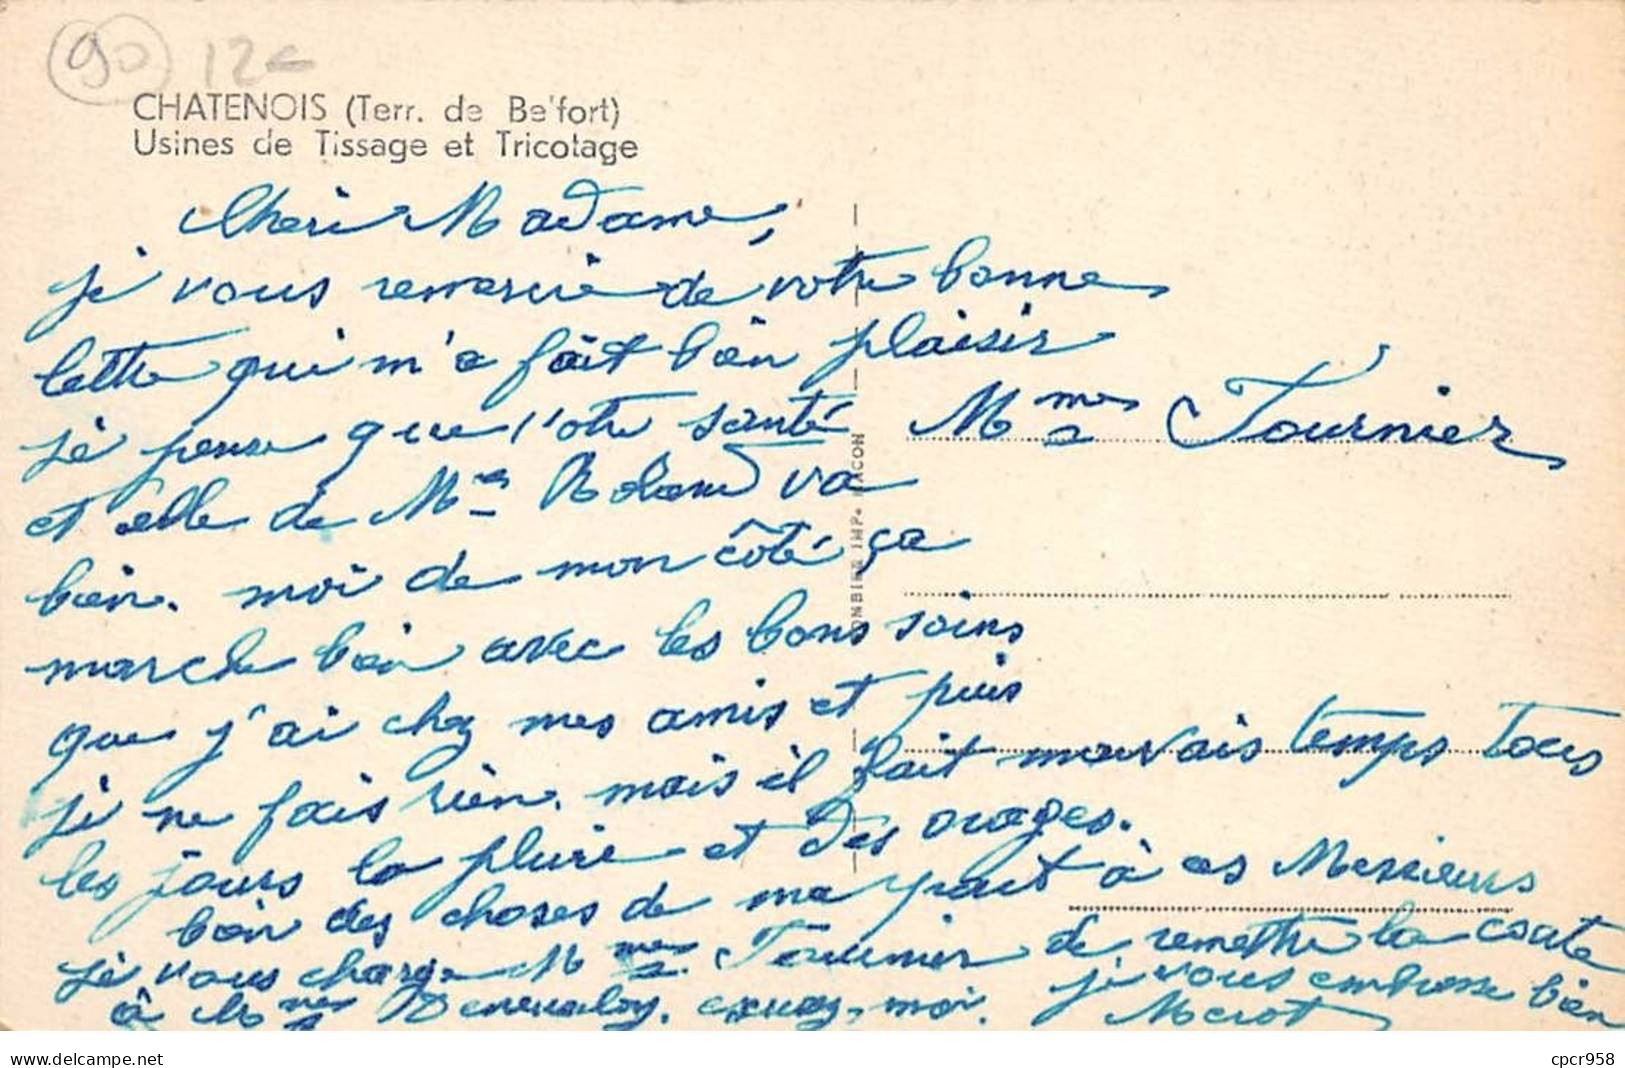 90 12€
CHATENOIS (Terr. de Belfort)
Usines de Tissage et Tricotage
Cheri Madame,
je vous remercie de votre bonne
lettre qui m'a fait bien plaisir
je pense que votre santé
et celle de Mr Roland va
bien. moi de mon côté ça
marche bien avec les bons soins
que j'ai chez mes amis et puis
je ne fais rien. mais il fait mauvais temps tous
les jours la pluie et des orages.
bien des choses de ma part à ces Messieurs
je vous charge Mme Tournier de remettre la carte
à Mme excusez-moi. je vous embrasse bien
Merot
Mme Tournier
COMBIER IMP. MACON
delcampe.net
cpcr958